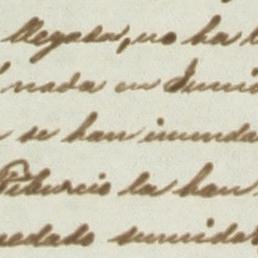 llegada, no ha
nada en Juni
se han inunda
Tiburcio la han
uedado sumida